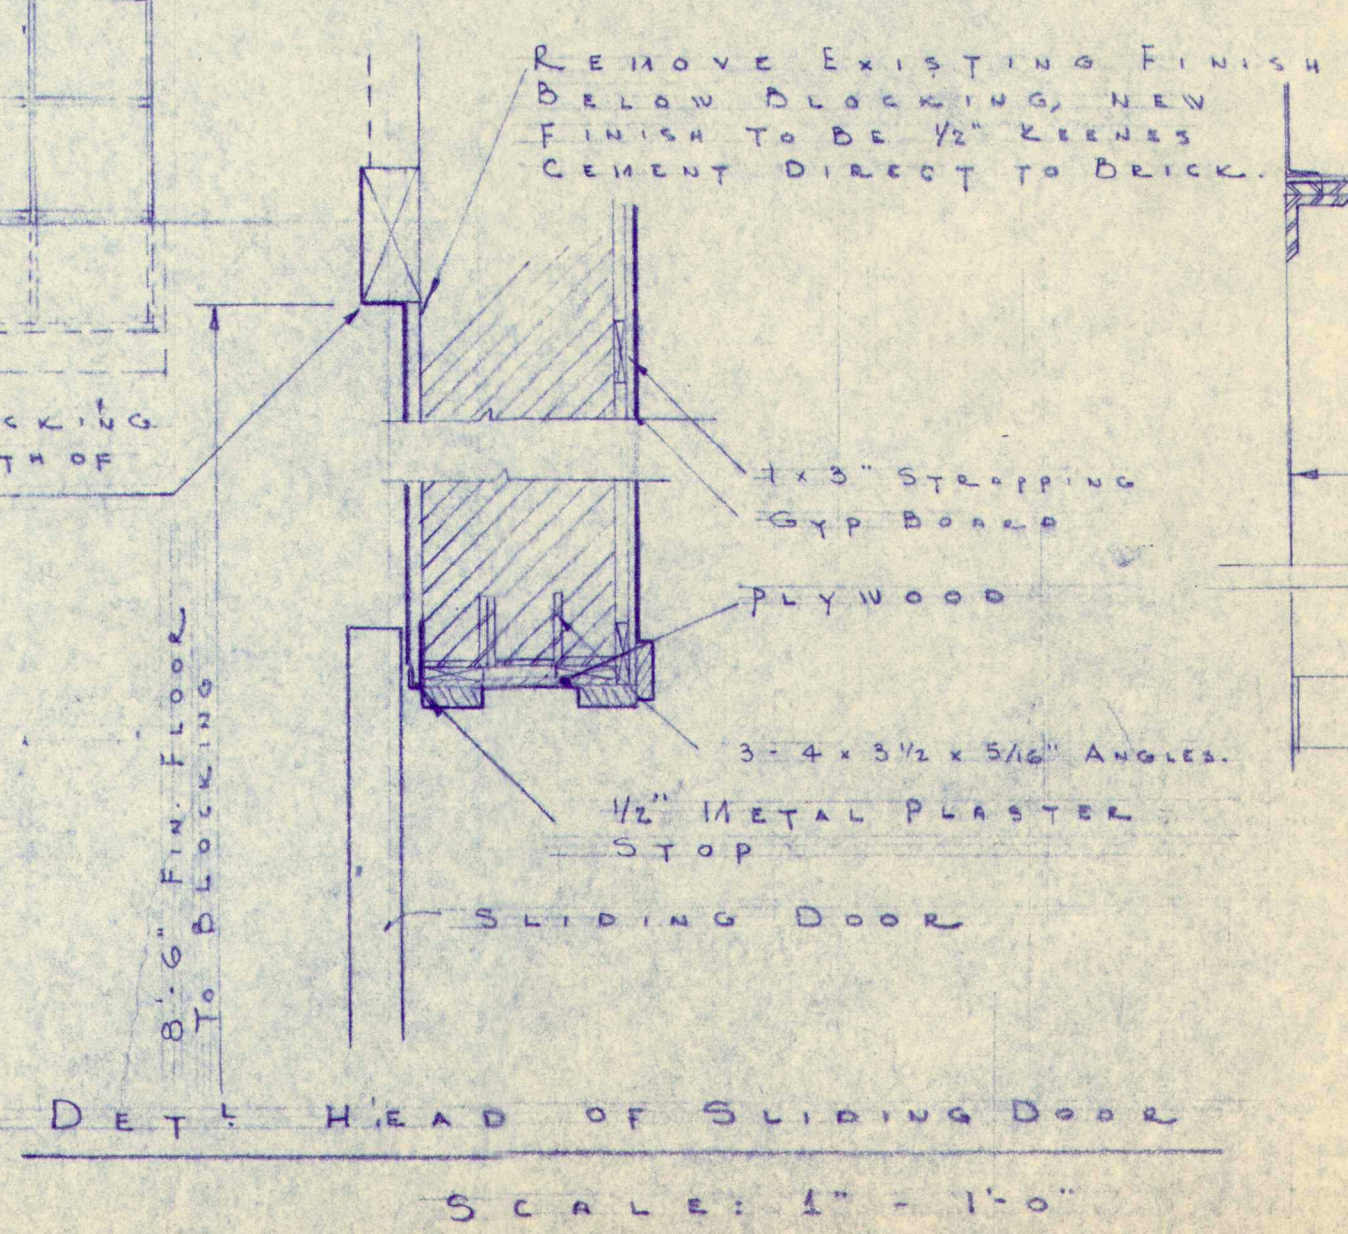 REMOVE EXISTING FINISH
BELOW BLOCKING, NEW
FINISH TO BE 1/2" KEENES
CEMENT DIRECT TO BRICK.
CKING
TH OF
1 x 3" STRAPPING
GYP BOARD
PLYWOOD
3 - 4 x 3 1/2 x 5/16" ANGLES.
1/2" METAL PLASTER
STOP
SLIDING DOOR
8'-6" FIN. FLOOR
TO BLOCKING
DET'L HEAD OF SLIDING DOOR
SCALE: 1" - 1'-0"